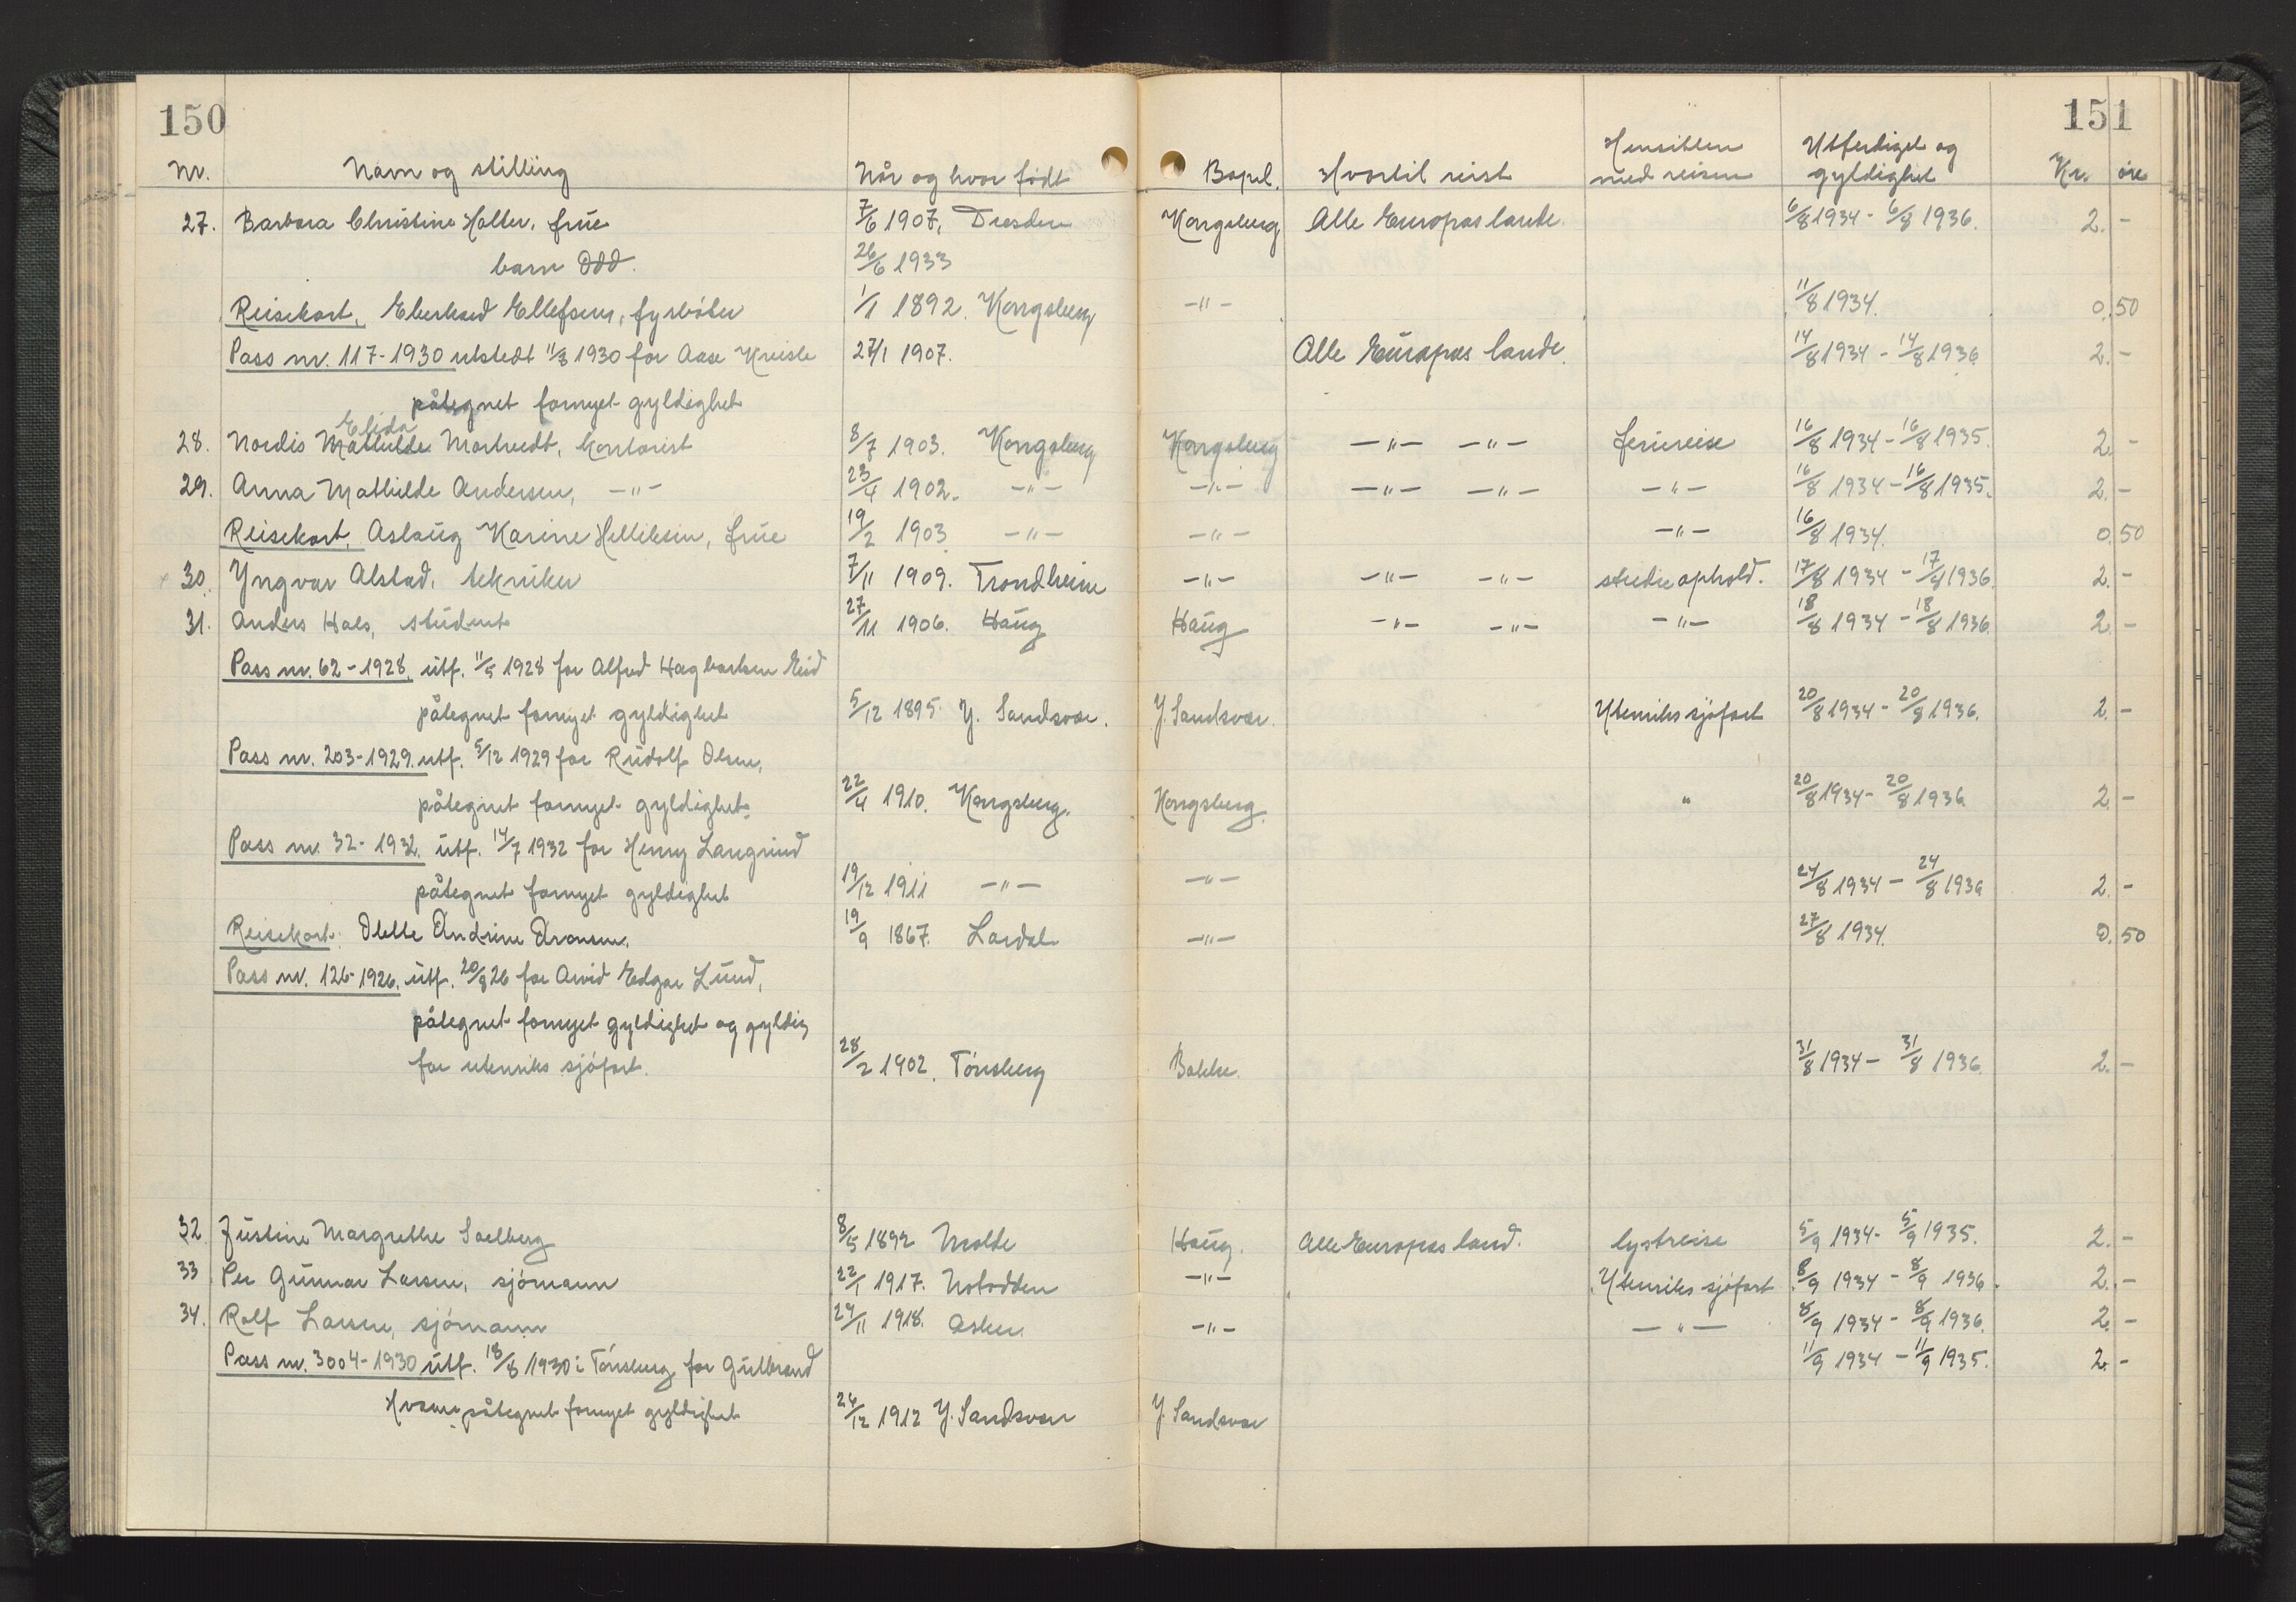 150 151
Nr. Navn og stilling Når og hvor født Bopel. Hvortil reist Hensikten med reisen Utferdiget og gyldighet Kr. øre
27. Barbara Christine Holter, frue 7/6 1907, Dresden Kongsberg Alle Europas lande. 6/8 1934 - 6/8 1936. 2. -
barn Odd. 26/6 1933
Reisekort. Ellefsen, fyrbøter 1/1 1892. Kongsberg -"- 11/8 1934. 0. 50
Pass nr. 117-1930 utstedt 11/8 1930 for Aase 27/1 1907. Alle Europas lande. 14/8 1934 - 14/8 1936 2. -
påtegnet fornyet gyldighet
Elida
28. Nordis Mathilde Mortvedt, kontorist 8/7 1903. Kongsberg Kongsberg -"- -"- feriereise 16/8 1934 - 16/8 1935. 2. -
29. Anna Mathilde Andersen, -"- 23/4 1902. -"- -"- -"- -"- -"- 16/8 1934 - 16/8 1935. 2. -
Reisekort. Aslaug Karine Helliksen, frue 19/2 1903 -"- -"- -"- 16/8 1934. 0. 50
30. Yngvar Alstad, tekniker 7/11 1909. Trondheim -"- -"- -"- studieophold. 17/8 1934 - 17/8 1936. 2. -
31. Anders Hals, student 27/11 1906. Haug Haug -"- -"- -"- 18/8 1934 - 18/8 1936. 2. -
Pass nr. 62-1928. utf. 11/5 1928 for Alfred Hagbartsen Eid
påtegnet fornyet gyldighet 5/12 1895. Y. Sandsvær. Y. Sandsvær. Utenriks sjøfart 20/8 1934 - 20/8 1936. 2. -
Pass nr. 203-1929. utf. 5/12 1929 for Rudolf Olsen,
påtegnet fornyet gyldighet. 22/4 1910. Kongsberg. Kongsberg. " 20/8 1934 - 20/8 1936 2. -
Pass nr. 32-1932. utf. 14/7 1932 for Henry Langrind
påtegnet fornyet gyldighet 19/12 1911 -"- -"- 24/8 1934 - 24/8 1936 2. -
Reisekort: Andrine Aronsen. 19/9 1867. Lardal -"- 27/8 1934. 0. 50
Pass nr. 126-1926. utf. 20/8 26 for Arvid Edgar Lund,
påtegnet fornyet gyldighet og gyldig
for utenriks sjøfart. 28/2 1902. Tønsberg Bakke. 31/8 1934 - 31/8 1936. 2. -
32. Justine Margrethe Solberg 8/5 1892 Molde Haug. Alle Europas land. lystreise 5/9 1934 - 5/9 1935. 2. -
33 Per Gunnar Larsen, sjømann 22/1 1917. Notodden -"- Utenriks sjøfart 8/9 1934 - 8/9 1936. 2. -
34. Rolf Larsen, sjømann 24/11 1918. Asker -"- -"- 8/9 1934 - 8/9 1936. 2. -
Pass nr. 3004-1930 utf. 18/8 1930 i Tønsberg for Gulbrand 11/9 1934 - 11/9 1935. 2. -
Hvam påtegnet fornyet gyldighet 26/12 1912 Y. Sandsvær Y. Sandsvær